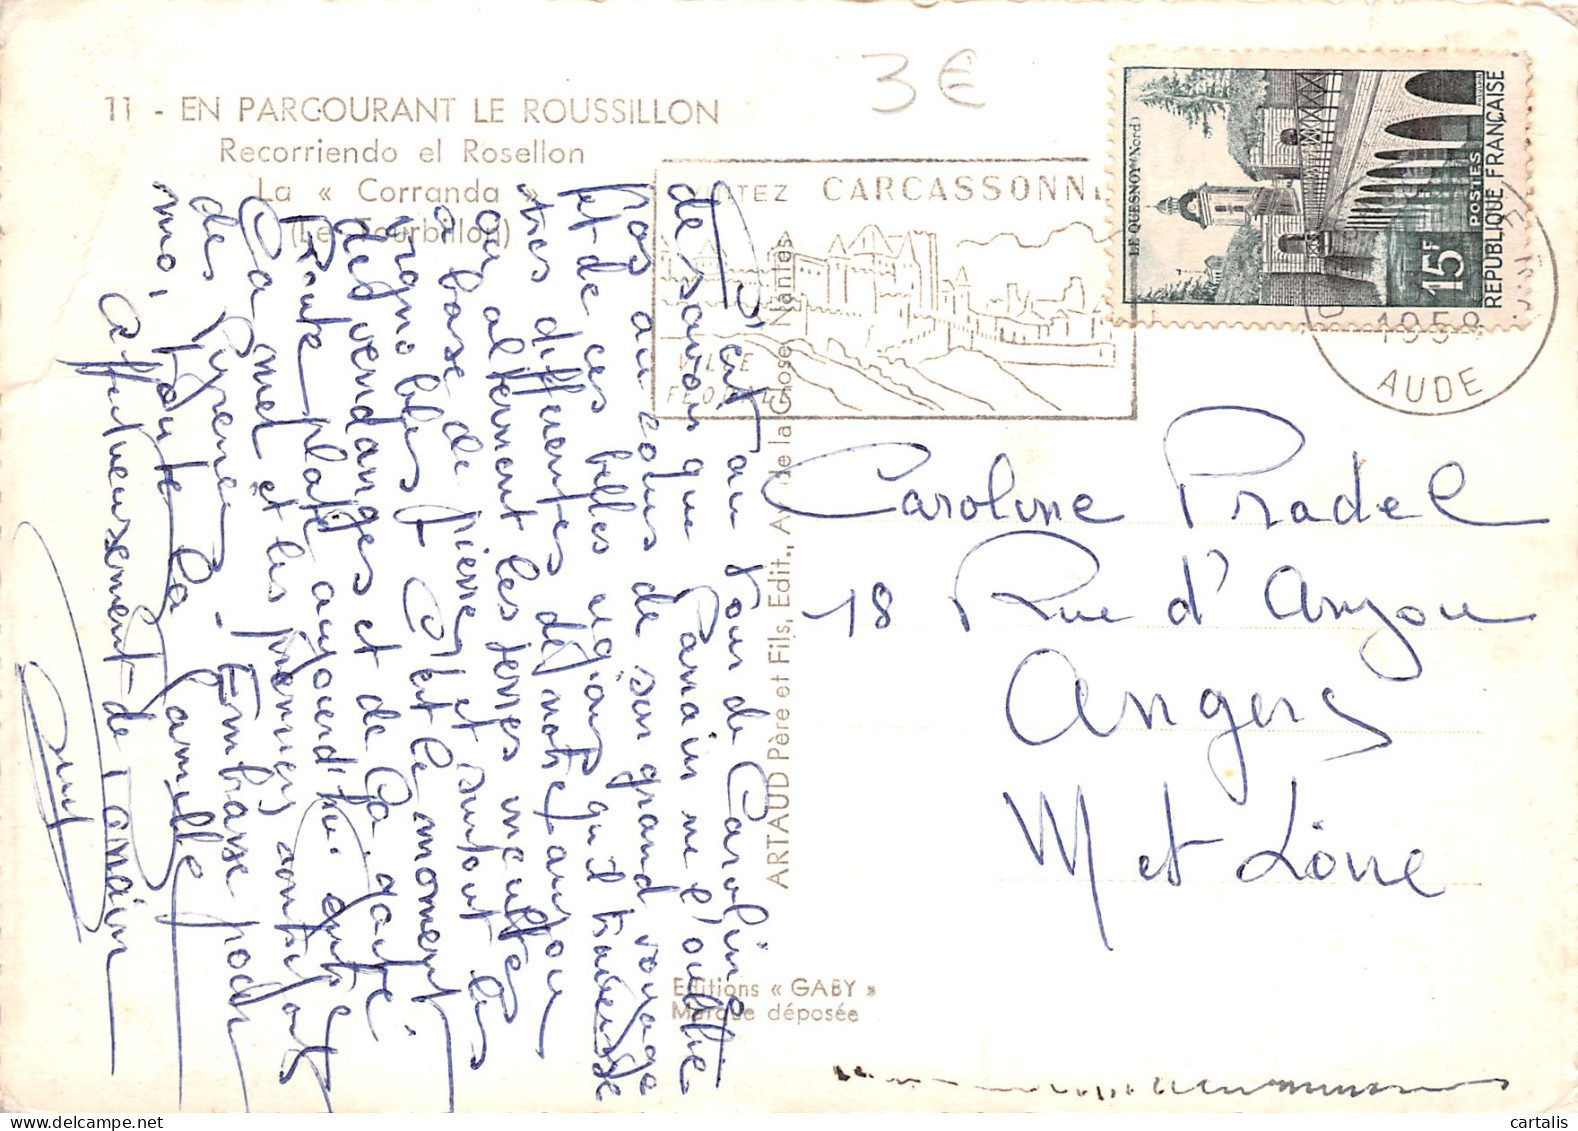 3€
11 - EN PARCOURANT LE ROUSSILLON
Recorriendo el Rosellon
La « Corranda »
(Le Tourbillon)
VISITEZ CARCASSONNE
VILLE
FEODALE
LE QUESNOY (Nord)
15F
POSTES
REPUBLIQUE FRANÇAISE
1958
AUDE
C'est au tour de Caroline
de savoir que Parrain ne l'oublie
pas au cours de son grand voyage
et de ces belles régions qu'il traverse
très différentes de notre Anjou
où alternent les terres incultes
à base de pierres et surtout les
vignobles. C'est le moment
des vendanges et de la gaîté.
Route plate aujourd'hui entre
la mer et les premiers contreforts
des Pyrénées. Embrasse pour
moi, toute la famille
Affectueusement - de Parrain
ARTAUD Père et Fils, Edit., Av. de la Close, Nantes
Editions « GABY »
Marque déposée
Caroline Pradel
18 Rue d'Anjou
Angers
M et Loire
cartalis